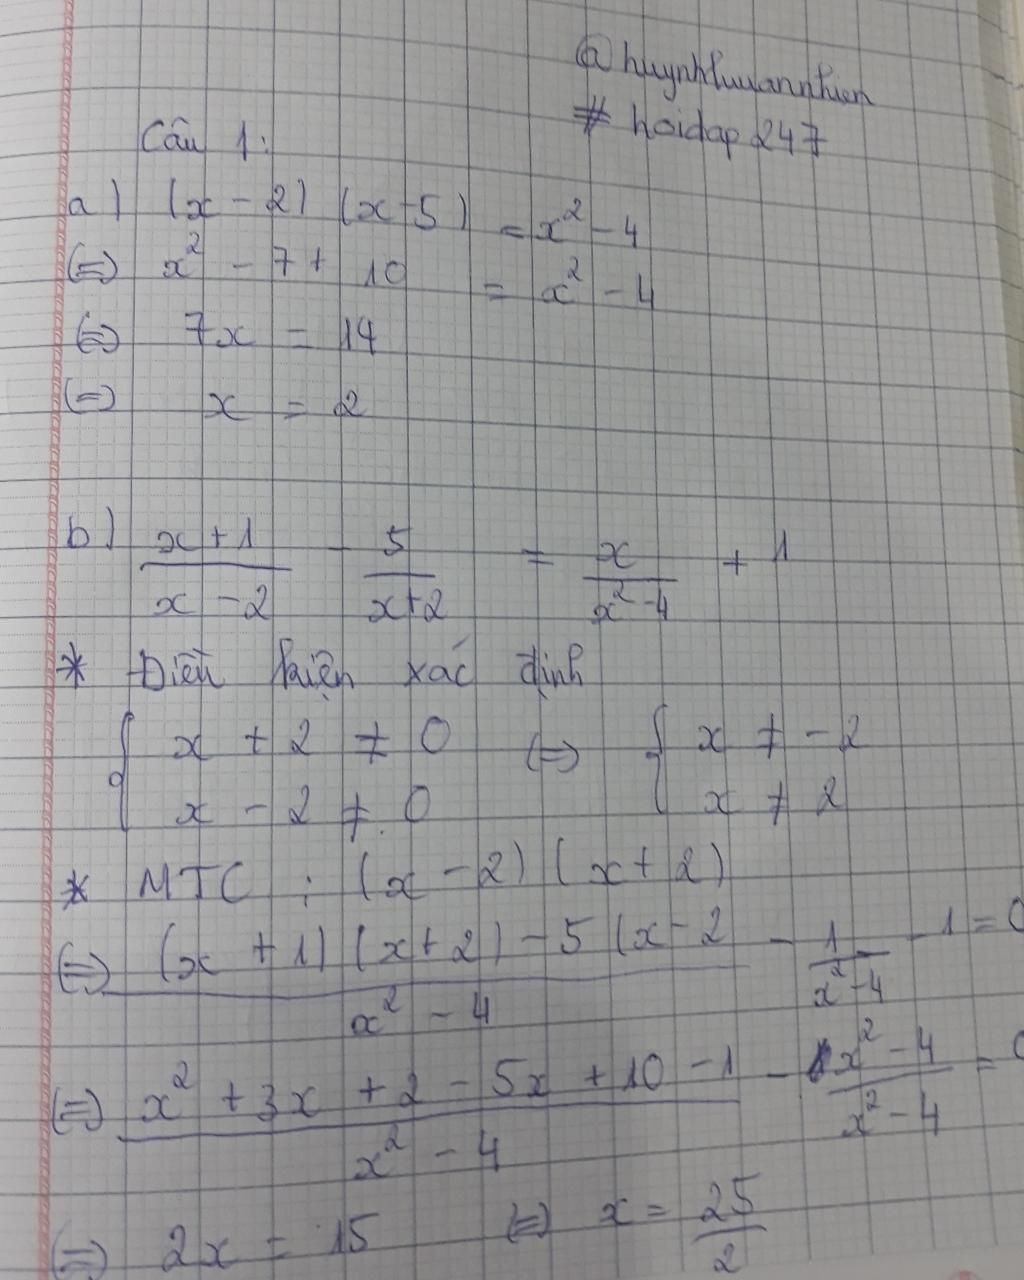 @huynhluuannhien
# hoidap247
Câu 1:
a) (x - 2) (x - 5) = x² - 4
(=) x² - 7 + 10 = x² - 4
(=) 7x = 14
(=) x = 2
b) (x + 1)/(x - 2) - 5/(x + 2) = x/(x² - 4) + 1
* Điều kiện xác định
{ x + 2 ≠ 0 (=) { x ≠ - 2
x - 2 ≠ 0 x ≠ 2
* MTC : (x - 2) (x + 2)
(=) ((x + 1) (x + 2) - 5 (x - 2)/(x² - 4) - 1/(x² - 4) - 1 = 0
(=) (x² + 3x + 2 - 5x + 10 - 1)/(x² - 4) - (x² - 4)/(x² - 4) = 0
(=) 2x = 15 (=) x = 25/2